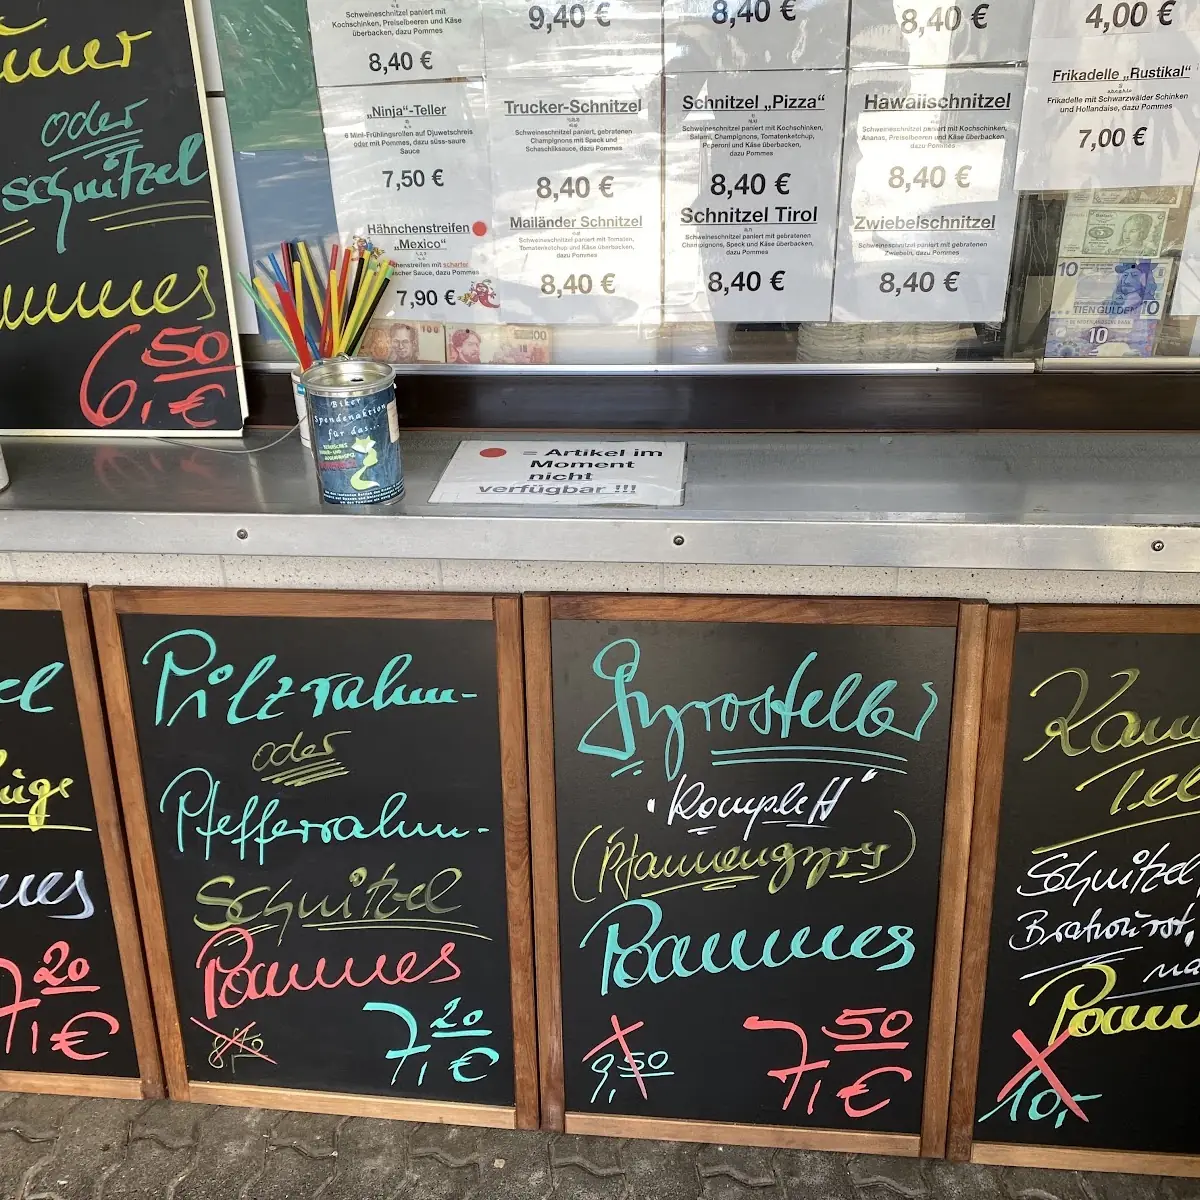 Schweineschnitzel paniert mit
Kochschinken, Preiselbeeren und Käse
überbacken, dazu Pommes
8,40 €
9,40 €
8,40 €
8,40 €
4,00 €
„Ninja"-Teller
6 Mini-Frühlingsrollen auf Djuwetschreis
oder mit Pommes, dazu süss-saure
Sauce
7,50 €
Trucker-Schnitzel
Schweineschnitzel paniert, gebratenen
Champignons mit Speck und
Schaschliksauce, dazu Pommes
8,40 €
Schnitzel „Pizza"
Schweineschnitzel paniert mit Kochschinken,
Salami, Champignons, Tomatenketchup,
Peperoni und Käse überbacken,
dazu Pommes
8,40 €
Hawaiischnitzel
Schweineschnitzel paniert mit Kochschinken,
Ananas, Preiselbeeren und Käse überbacken,
dazu Pommes
8,40 €
Frikadelle „Rustikal"
Frikadelle mit Schwarzwälder Schinken
und Hollandaise, dazu Pommes
7,00 €
Hähnchenstreifen
„Mexico"
scharfer
Sauce, dazu Pommes
7,90 €
Mailänder Schnitzel
Schweineschnitzel paniert mit Tomaten,
Tomatenketchup und Käse überbacken,
dazu Pommes
8,40 €
Schnitzel Tirol
Schweineschnitzel paniert mit gebratenen
Champignons, Speck und Käse überbacken,
dazu Pommes
8,40 €
Zwiebelschnitzel
Schweineschnitzel paniert mit gebratenen
Zwiebeln, dazu Pommes
8,40 €
100
100
10
10
TIEN GULDEN
10
oder
schnitzel
6,50 €
Biker
Spendenaktion
für das...
= Artikel im
Moment
nicht
verfügbar !!!
7,20 €
Pilzrahm-
oder
Pfefferrahm-
Schnitzel
Pommes
7,20 €
Gyrosteller
"Komplett"
(Pfannengyros)
Pommes
9,50
7,50 €
Schnitzel
Bratwurst,
10,-